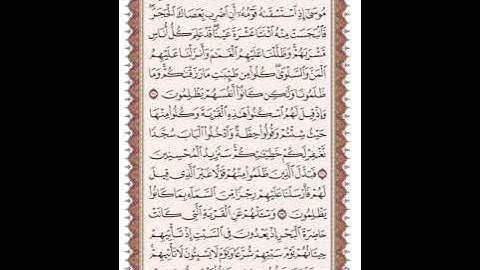 مُوسَىٰٓ إِذِ ٱسْتَسْقَىٰهُ قَوْمُهُۥٓ أَنِ ٱضْرِب بِّعَصَاكَ ٱلْحَجَرَ ۖ
فَٱنۢبَجَسَتْ مِنْهُ ٱثْنَتَا عَشْرَةَ عَيْنًا ۖ قَدْ عَلِمَ كُلُّ أُنَاسٍ
مَّشْرَبَهُمْ ۚ وَظَلَّلْنَا عَلَيْهِمُ ٱلْغَمَٰمَ وَأَنزَلْنَا عَلَيْهِمُ
ٱلْمَنَّ وَٱلسَّلْوَىٰ ۖ كُلُوا۟ مِن طَيِّبَٰتِ مَا رَزَقْنَٰكُمْ ۚ وَمَا
ظَلَمُونَا وَلَٰكِن كَانُوٓا۟ أَنفُسَهُمْ يَظْلِمُونَ ۝١٦٠
وَإِذْ قِيلَ لَهُمُ ٱسْكُنُوا۟ هَٰذِهِ ٱلْقَرْيَةَ وَكُلُوا۟ مِنْهَا
حَيْثُ شِئْتُمْ وَقُولُوا۟ حِطَّةٌ وَٱدْخُلُوا۟ ٱلْبَابَ سُجَّدًا
نَّغْفِرْ لَكُمْ خَطِيٓـَٰٔتِكُمْ ۚ سَنَزِيدُ ٱلْمُحْسِنِينَ
۝١٦١ فَبَدَّلَ ٱلَّذِينَ ظَلَمُوا۟ مِنْهُمْ قَوْلًا غَيْرَ ٱلَّذِى قِيلَ
لَهُمْ فَأَرْسَلْنَا عَلَيْهِمْ رِجْزًا مِّنَ ٱلسَّمَآءِ بِمَا كَانُوا۟
يَظْلِمُونَ ۝١٦٢ وَسْـَٔلْهُمْ عَنِ ٱلْقَرْيَةِ ٱلَّتِى كَانَتْ
حَاضِرَةَ ٱلْبَحْرِ إِذْ يَعْدُونَ فِى ٱلسَّبْتِ إِذْ تَأْتِيهِمْ
حِيتَانُهُمْ يَوْمَ سَبْتِهِمْ شُرَّعًا وَيَوْمَ لَا يَسْبِتُونَ ۙ لَا تَأْتِيهِمْ ۚ